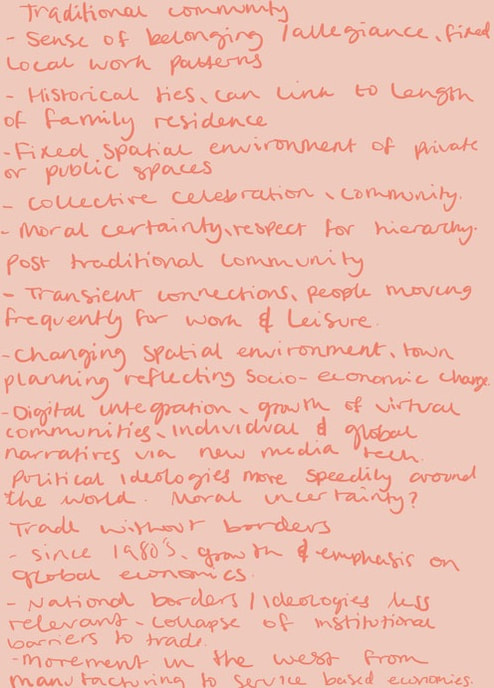 Traditional community
- Sense of belonging / allegiance, fixed
local work patterns
- Historical ties, can link to length
of family residence
- Fixed spatial environment of private
or public spaces
- collective celebration, community.
- Moral certainty, respect for hierarchy.
Post traditional community
- Transient connections, people moving
frequently for work & leisure.
- Changing spatial environment, town
planning reflecting socio-economic change.
- Digital integration, growth of virtual
communities, individual & global
narratives via new media tech.
Political ideologies move speedily around
the world. Moral uncertainty?
Trade without borders
- since 1980's, growth & emphasis on
global economics.
- National borders / ideologies less
relevant - collapse of institutional
barriers to trade.
- Movement in the west from
manufacturing to service based economies.